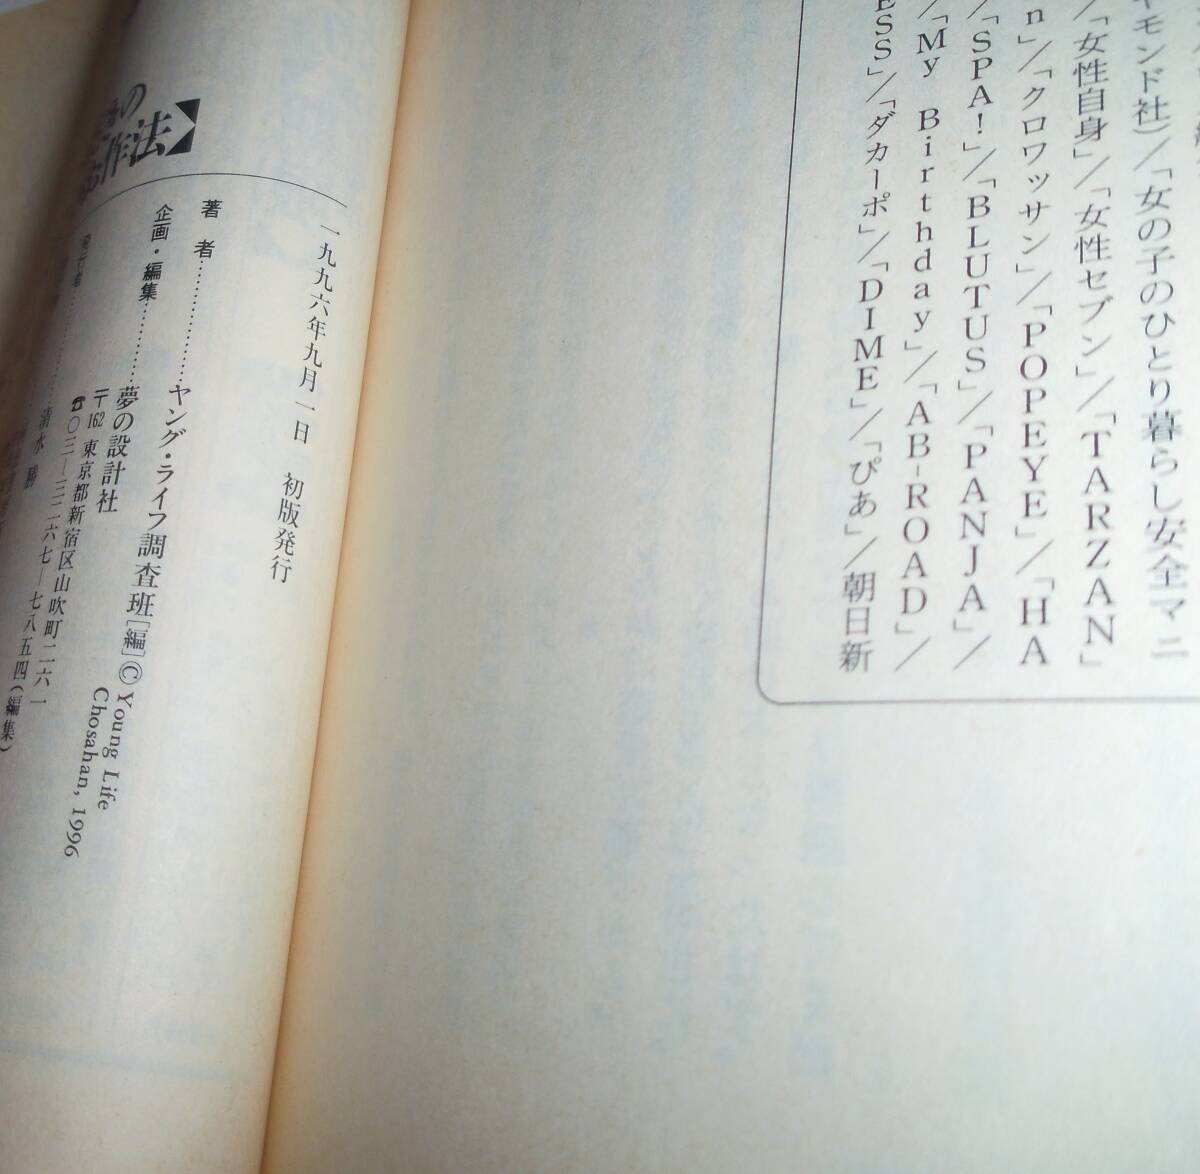 ヤモンド社)/「女の子のひとり暮らし安全マニ
/「女性自身」/「女性セブン」/「TARZAN」
n」/「クロワッサン」/「POPEYE」/「HA
/「SPA!」/「BLUTUS」/「PANJA」/
/「My Birthday」/「AB-ROAD」/
ESS」/「ダカーポ」/「DIME」/「ぴあ」/朝日新
の
作法
一九九六年九月一日 初版発行
著者……………ヤング・ライフ調査班[編]©Young Life Chosahan, 1996
企画・編集…………夢の設計社
〒162 東京都新宿区山吹町二六一
☎〇三―三二六七―七八五四(編集)
発行者……………清水勝